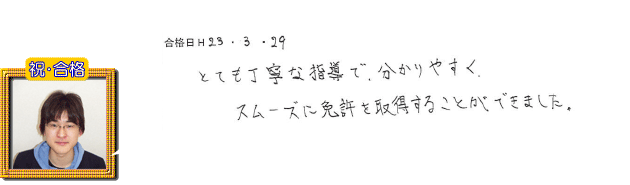 合格日 H 23 ・ 3 ・ 29
とても丁寧な指導で、分かりやすく、
スムーズに免許を取得することができました。
祝・合格